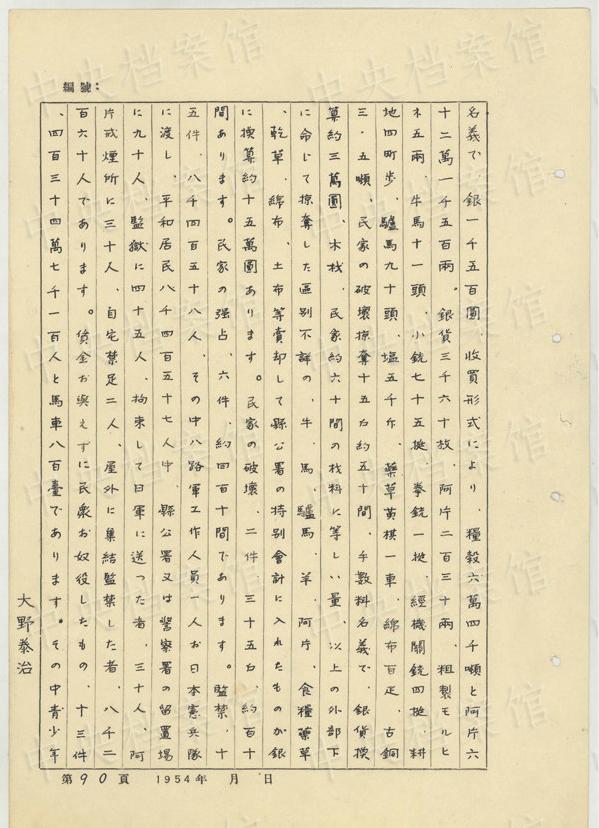 編號：
名義で、銀一千五百圓、收買形式により、糧穀六萬四千噸と阿片六
十二萬一千五百兩。銀貨三千六十枚、阿片二百三十兩、粗製モルヒ
ネ五兩、牛馬十一頭、小銃七十五挺、拳銃一挺、經機關銃四挺、耕
地四町步、驢馬九十頭、塩五千斤、藥草黃棋一車、綿布百疋、古銅
三.五噸、民家の破壞掠奪十五戶約五十間、手数料名義で、銀貨換
算約三萬圓、木材、民家約六十間の材料に等しい量、以上の外部下
に命じて掠奪した區别不詳の、牛、馬、驢馬、羊、阿片、食糧藥草
、乾草、綿布、土布等賣却して縣公署の特别會計に入れたものか銀
に換算約十五萬圓あります。民家の破壞、二件、三十五戶、約百十
間あります。民家の强占、六件、約四百十間であります。監禁、十
五件、八千四百五十八人、その中八路軍工作人員一人お日本憲兵隊
に渡し、平和居民八千四百五十七人中、縣公署又は警察署の留置場
に九十人、監獄に四十五人、拘束して日軍に送った者、三十人、阿
片戒煙所に三十人、自宅禁足二人、屋外に集結監禁した者、八千二
百六十人であります。賃金お與えずに民衆お奴役したもの、十三件
、四百三十四萬七千一百人と馬車八百臺であります。その中青少年
大野泰治
第90頁 1954年 月 日
中央档案馆